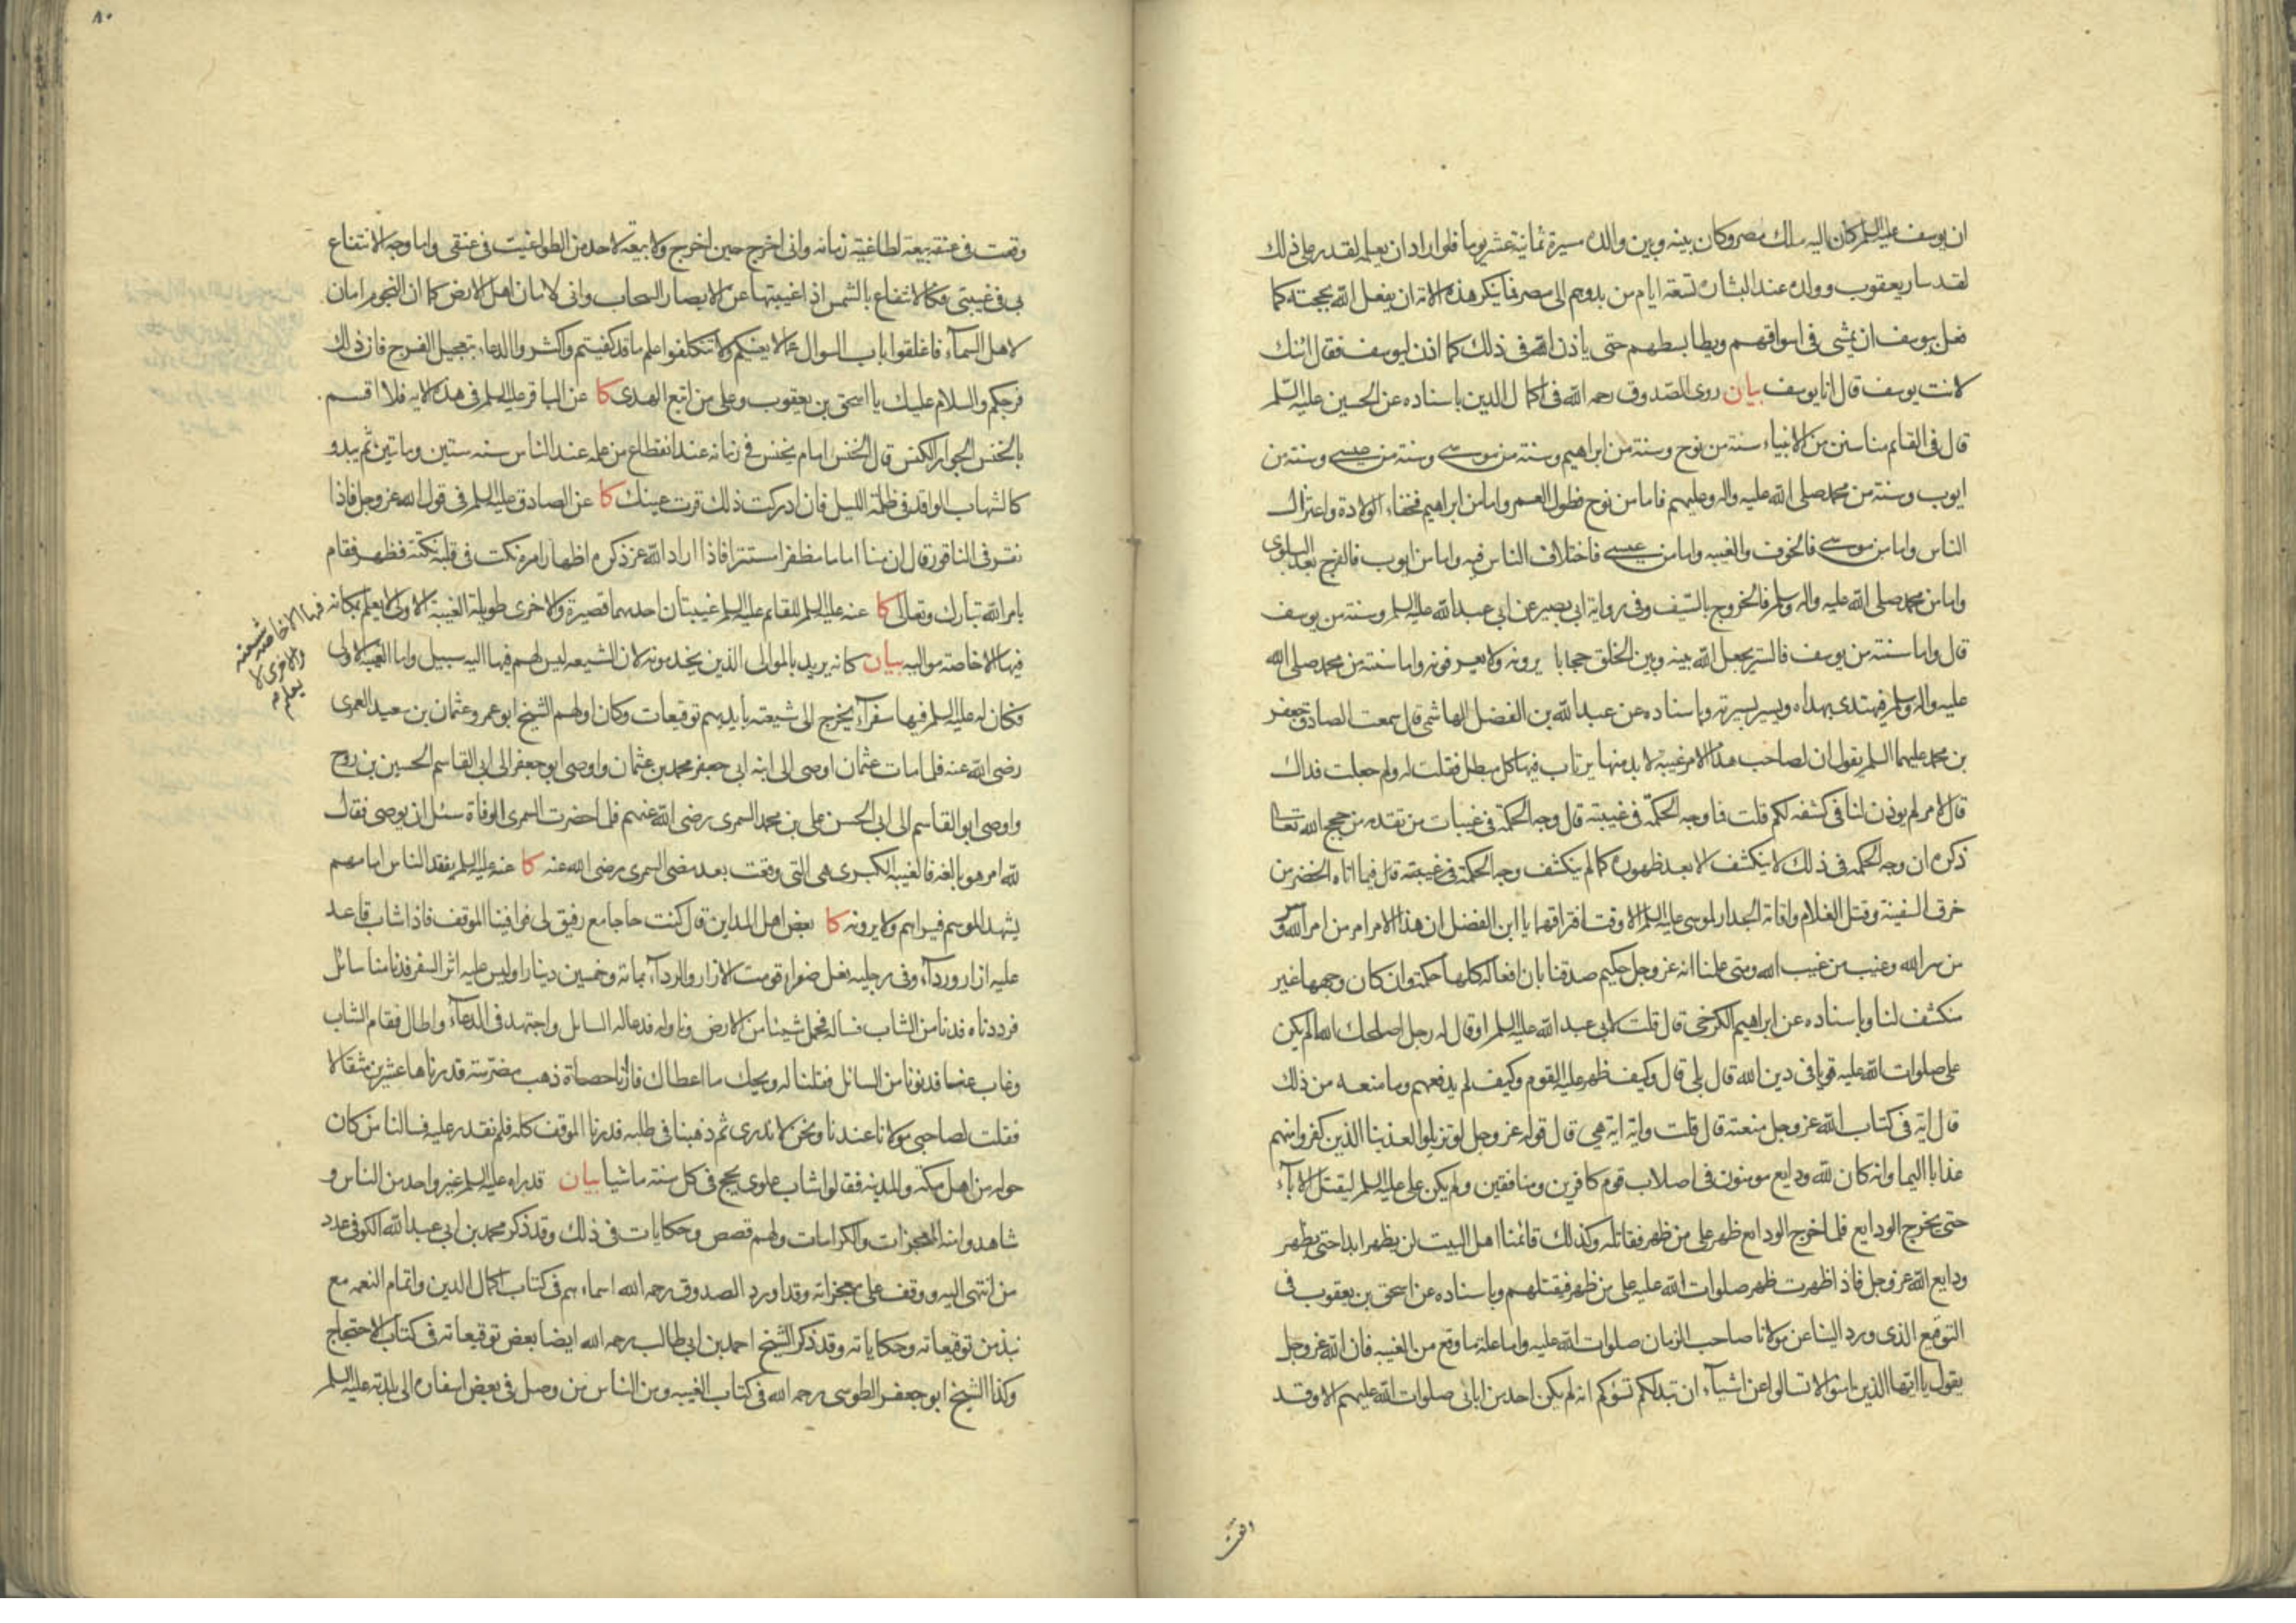 ان يوسف عليه السلم كان اليه ملك مصر وكان بينه وبين والده مسيرة ثمانية عشر يوما فلو اراد ان يعلمه لقدر على ذلك
لقد سار يعقوب وولده عند البشارة تسعة ايام من بدوهم الى مصر فما ينكر هذه الامة ان يفعل الله بحجته كما
فعل بيوسف ان يمشى فى اسواقهم ويطا بسطهم حتى ياذن الله فى ذلك كما اذن ليوسف فقال ائنك
لانت يوسف قال انا يوسف بيان روى الصدوق رحمه الله فى اكمال الدين باسناده عن الحسين عليه السلم
قال فى القايم منا سنن من الانبياء سنة من نوح وسنة من ابراهيم وسنة من موسى وسنة من عيسى وسنة من
ايوب وسنة من محمد صلى الله عليه واله وعليهم فاما من نوح فطول العمر واما من ابراهيم فخفاء الولادة واعتزال
الناس واما من موسى فالخوف والغيبه واما من عيسى فاختلاف الناس فيه واما من ايوب فالفرج بعد البلوى
واما من محمد صلى الله عليه واله وسلم فالخروج بالسيف وفى رواية ابى بصير عن ابى عبد الله عليه السلم وسنة من يوسف
قال واما سنته من يوسف فالستر يجعل الله بينه وبين الخلق حجابا يرونه ولا يعرفونه واما سنته من محمد صلى الله
عليه واله وسلم فيهتدى بهداه ويسير بسيرته وباسناده عن عبد الله بن الفضل الهاشمى قال سمعت الصادق جعفر
بن محمد عليهما السلم يقول ان لصاحب هذا الامر غيبة لا بد منها يرتاب فيها كل مبطل فقلت له ولم جعلت فداك
قال لامر لم يوذن لنا فى كشفه لكم قلت فما وجه الحكمة فى غيبته قال وجه الحكمة فى غيبات من تقدمه من حجج الله تعالى
ذكره ان وجه الحكمه فى ذلك لا ينكشف الا بعد ظهوره كما لم ينكشف وجه الحكمة فى غيبته قال فيما اتاه الخضر من
خرق السفينة وقتل الغلام واقامة الجدار لموسى عليه السلم الا وقت افتراقهما يا ابن الفضل ان هذا الامر امر من امر الله وسر
من سر الله وغيب من غيب الله ومتى علمنا انه عز وجل حكيم صدقنا بان افعاله كلها حكمة وان كان وجهها غير
منكشف لنا وباسناده عن ابراهيم الكرخى قال قلت لابى عبد الله عليه السلم او قال له رجل اصلحك الله الم يكن
على صلوات الله عليه قويا فى دين الله قال بلى قال وكيف ظهر عليه القوم وكيف لم يدفعهم وما منعه من ذلك
قال اية فى كتاب الله عز وجل منعته قال قلت واية اية هى قال قوله عز وجل لو تزيلوا لعذبنا الذين كفروا منهم
عذابا اليما وانه كان لله ودايع مومنون فى اصلاب قوم كافرين ومنافقين ولم يكن على عليه السلم ليقتل الاباء
حتى يخرج الودايع فلما خرج الودايع ظهر على من ظهر فقاتله وكذلك قائمنا اهل البيت لن يظهر ابدا حتى يظهر
ودايع الله عز وجل فاذا ظهرت ظهر صلوات الله عليه على من ظهر فيقتلهم وباسناده عن اسحق بن يعقوب فى
التوقيع الذى ورد الينا عن مولانا صاحب الزمان صلوات الله عليه واما علة ما وقع من الغيبه فان الله عز وجل
يقول يا ايها الذين امنوا لا تسالوا عن اشياء ان تبد لكم تسؤكم انه لم يكن احد من ابائى صلوات الله عليهم الا وقد
وقعت
وقعت فى عنقه بيعة لطاغية زمانه وانى اخرج حين اخرج ولا بيعة لاحد من الطواغيت فى عنقى واما وجه الانتفاع
بى فى غيبتى فكالانتفاع بالشمس اذا غيبتها عن الابصار السحاب وانى لامان اهل الارض كما ان النجوم امان
لاهل السماء فاغلقوا باب السوال عما لا يعنيكم ولا تتكلفوا علم ما قد كفيتم واكثروا الدعاء بتعجيل الفرج فان ذلك
فرجكم والسلام عليك يا اسحق بن يعقوب وعلى من اتبع الهدى كا عن الباقر عليه السلم فى هذه الايه فلا اقسم
بالخنس الجوار الكنس قال الخنس امام يخنس فى زمانه عند انقطاع من علمه عند الناس سنه ستين وماتين ثم يبدو
كالشهاب الواقد فى ظلمة الليل فان ادركت ذلك قرت عينك كا عن الصادق عليه السلم فى قول الله عز وجل فاذا
نقر فى الناقور قال ان منا اماما مظفرا مستترا فاذا اراد الله عز ذكره اظهار امره نكت فى قلبه نكتة فظهر فقام
بامر الله تبارك وتعالى كا عنه عليه السلم للقايم عليه السلم غيبتان احديهما قصيرة والاخرى طويلة الغيبة الاولى لا يعلم بمكانه
فيها الا خاصة شيعته
والاخرى لا
يعلم
فيها الا خاصة مواليه بيان كانه يريد بالموالى الذين يخدمونه لان الشيعه ليس لهم فيها اليه سبيل واما الغيبة الاولى
فكان له عليه السلم فيها سفراء يخرج الى شيعته بايديهم توقيعات وكان اولهم الشيخ ابو عمرو عثمان بن سعيد العمرى
رضى الله عنه فلما مات عثمان اوصى الى ابنه ابى جعفر محمد بن عثمان واوصى ابو جعفر الى ابى القاسم الحسين بن روح
واوصى ابو القاسم الى ابى الحسن على بن محمد السمرى رضى الله عنهم فلما حضرت السمرى الوفاة سئل ان يوصى فقال
لله امر هو بالغه فالغيبه الكبرى هى التى وقعت بعد مضى السمرى رضى الله عنه كا عنه عليه السلم يفقد الناس امامهم
يشهد الموسم فيراهم ولا يرونه كا بعض اهل المداين قال كنت حاجا مع رفيق لى فوافينا الموقف فاذا شاب قاعد
عليه ازار ورداء وفى رجليه نعل صفراء قومت الازار والرداء بماته وخمسين دينارا وليس عليه اثر السفر فدنا منا سائل
فرددناه فدنا من الشاب فساله فحمل شيئا من الارض وناوله فدعا له السايل واجتهد فى الدعاء واطال فقام الشاب
وغاب عنا فدنونا من السائل فقلنا له ويحك ما اعطاك فارانا حصاة ذهب مضرسة قدرناها عشرين مثقالا
فقلت لصاحبى مولانا عندنا ونحن لا ندرى ثم ذهبنا فى طلبه فدرنا الموقف كله فلم نقدر عليه فسالنا من كان
حوله من اهل مكة والمدينه فقالوا شاب علوى يحج فى كل سنة ماشيا بيان قد راه عليه السلم غير واحد من الناس و
شاهدوا منه المعجزات والكرامات ولهم قصص وحكايات فى ذلك وقد ذكر محمد بن ابى عبد الله الكوفى عدد
من انتهى اليه ووقف على معجزاته وقد اورد الصدوق رحمه الله اسماءهم فى كتاب اكمال الدين واتمام النعمه مع
نبذ من توقيعاته وحكاياته وقد ذكر الشيخ احمد بن ابى طالب رحمه الله ايضا بعض توقيعاته فى كتاب الاحتجاج
وكذا الشيخ ابو جعفر الطوسى رحمه الله فى كتاب الغيبه ومن الناس من وصل فى بعض اسفاره الى بلدته عليه السلم